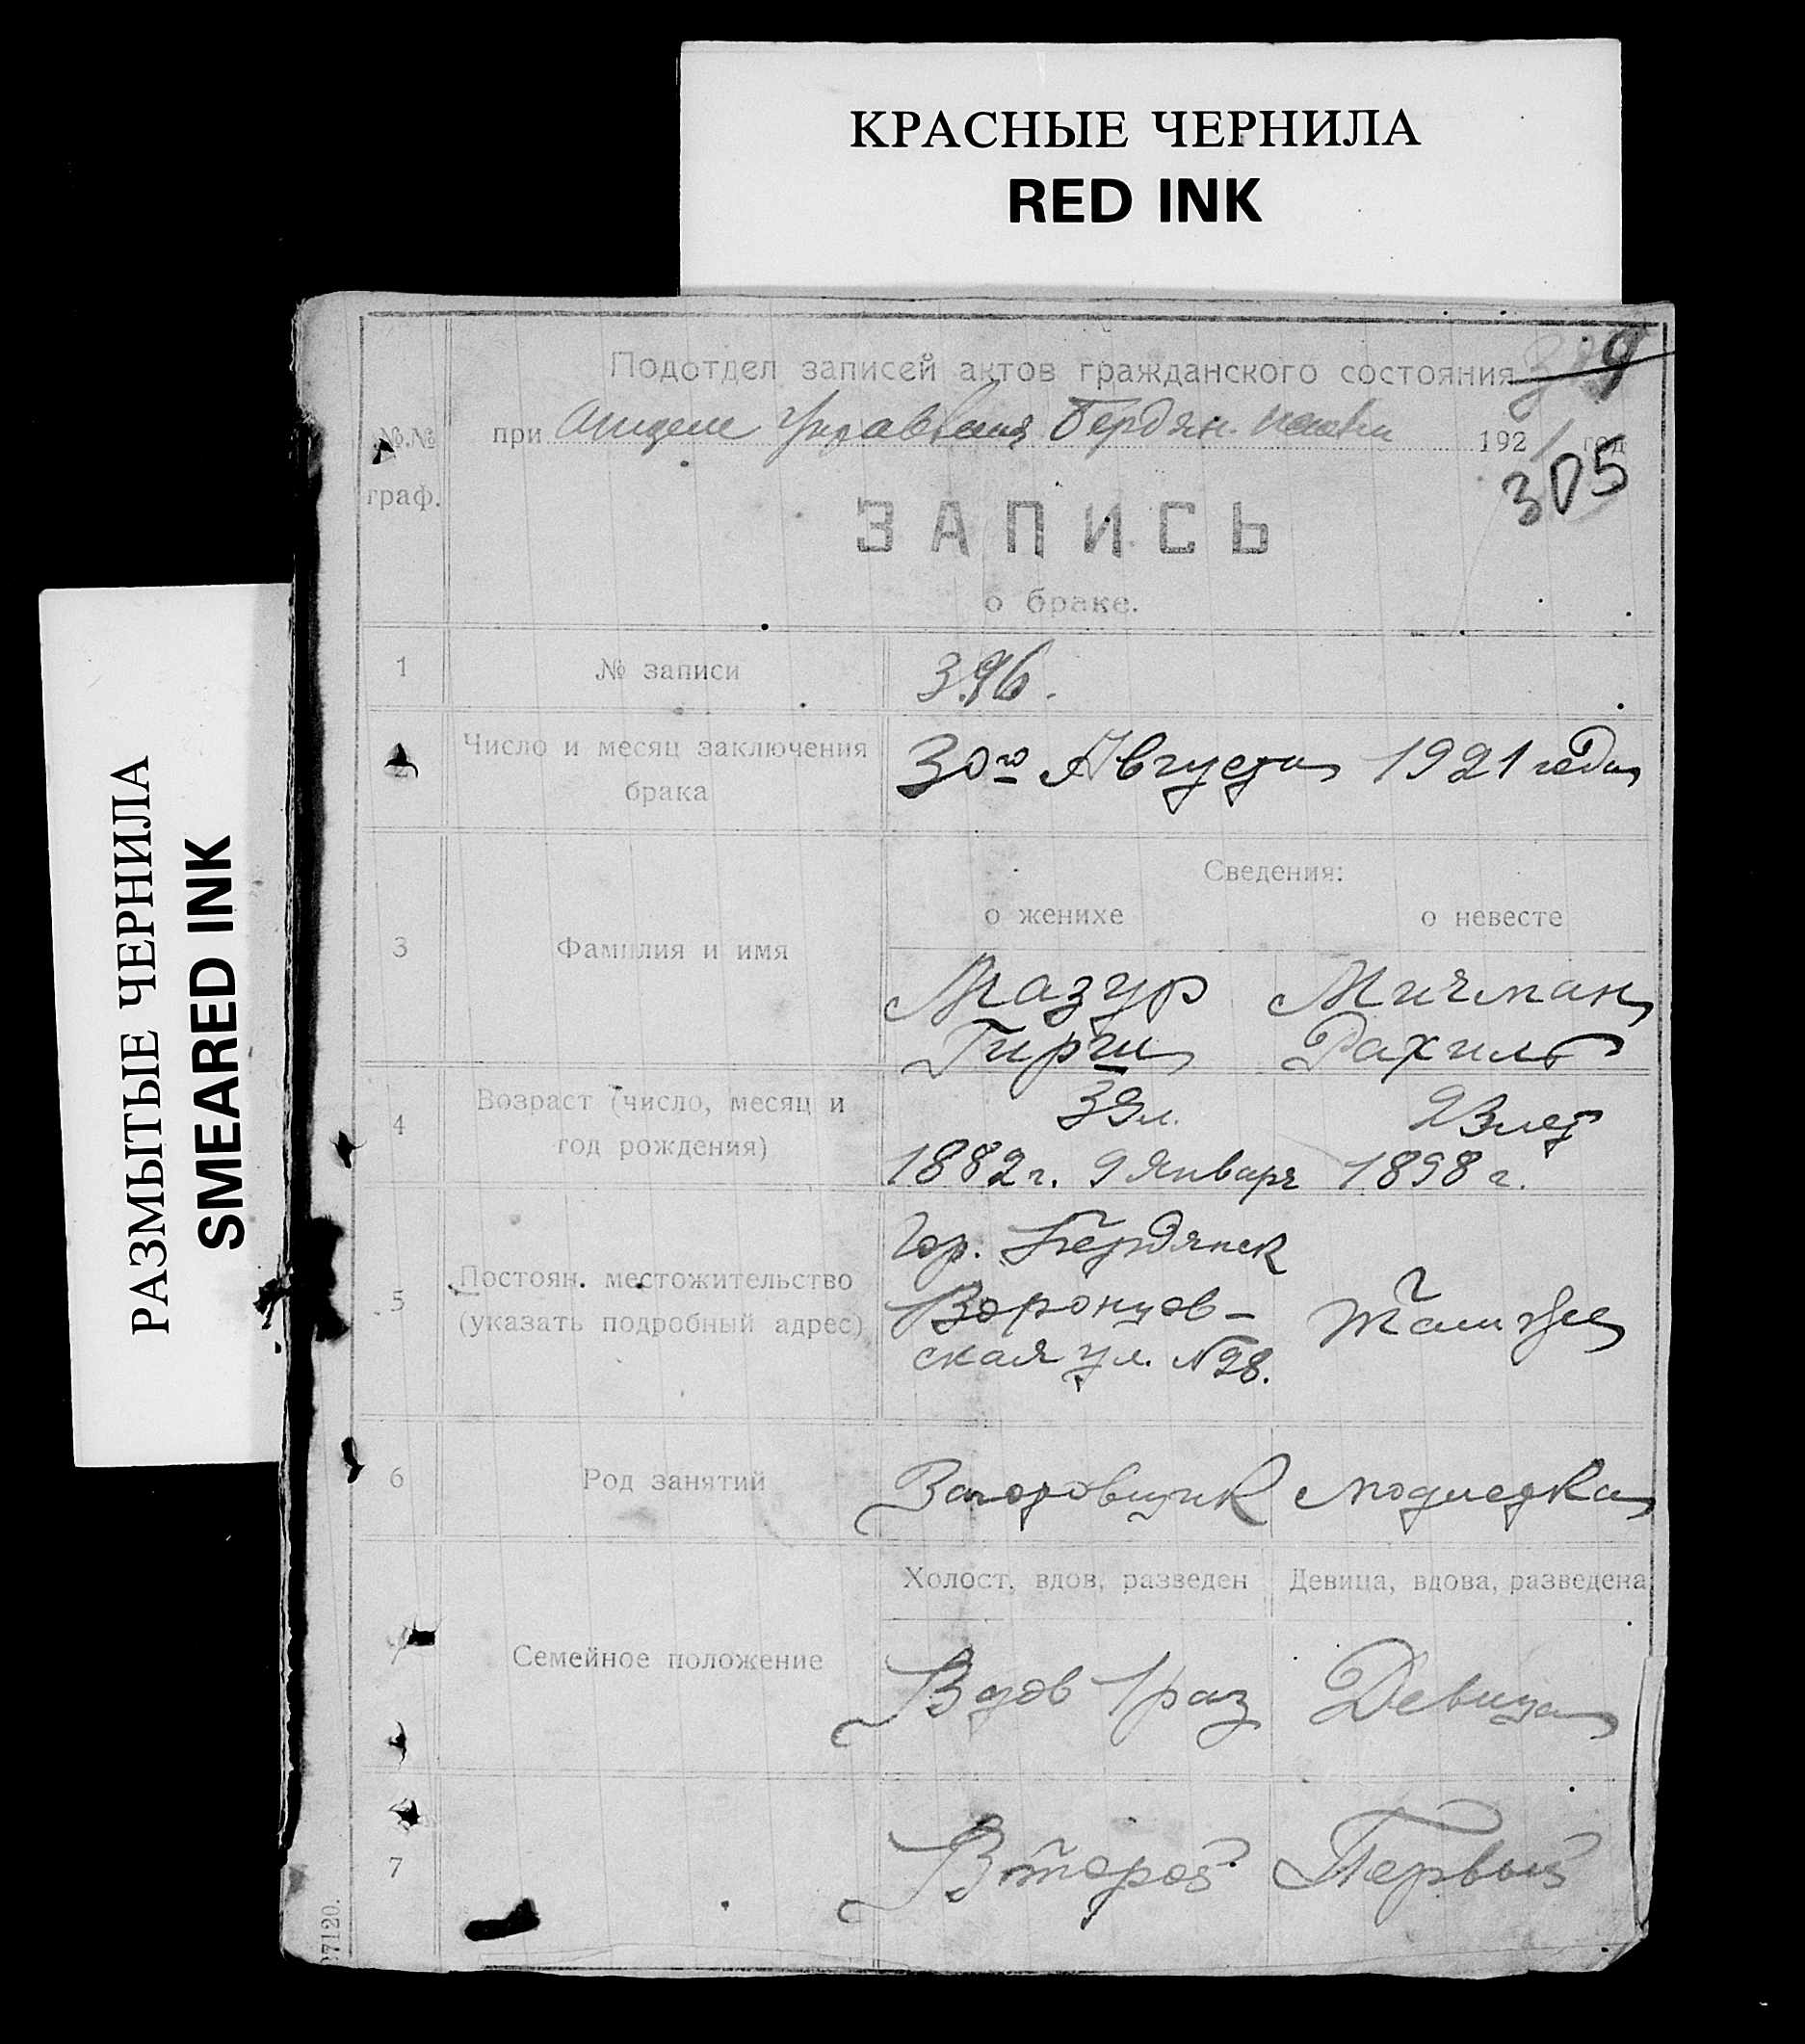 КРАСНЫЕ ЧЕРНИЛА
RED INK
РАЗМЫТЫЕ ЧЕРНИЛА
SMEARED INK
Подотдел записей актов гражданского состояния
при Отделе Управления Бердян. 1921 год
305
№.№ граф.
ЗАПИСЬ
о браке.
1 № записи 396.
2 Число и месяц заключения брака 30го Августа 1921 года
Сведения:
о женихе о невесте
3 Фамилия и имя
Мазур Мичман
Гирш Рахиль
4 Возраст (число, месяц и год рождения)
39 л. 23 лет
1882 г. 9 Января 1898 г.
5 Постоян. местожительство (указать подробный адрес)
Гор. Бердянск
Воронцов- Там же
ская ул. № 28.
6 Род занятий модистка
Холост, вдов, разведен Девица, вдова, разведена
Семейное положение
Вдов 1 раз Девица
7 Второй Первый
27120.